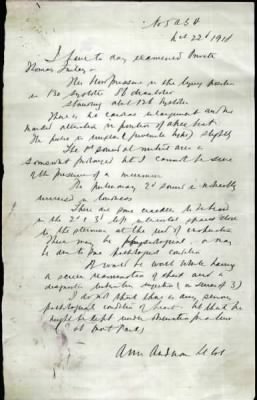 Oct 22nd 1918
I have to day examined Private
Thomas
His blood pressure in the lying position
is 130 systolic 86 diastolic
standing about 126 systolic
There is no cardiac enlargement and no
marked alteration in position of apex beat.
The pulse is unequal (juvenile type) slightly
The 1st sound at mitral area is
somewhat prolonged but I cannot be sure
of the presence of a murmur
The pulmonary 2nd sound is
increased in loudness
There are some crackles to be heard
in the 2nd & 3rd left intercostal spaces close
to the sternum at the end of
These may be physiological, or may
be due to some pathological condition
It would be worth while having
a screen examination of chest and a
diagnostic tuberculin injection (or series of 3)
I do not think there is any serious
pathological condition of heart but that he
might be kept under observation for a time
at